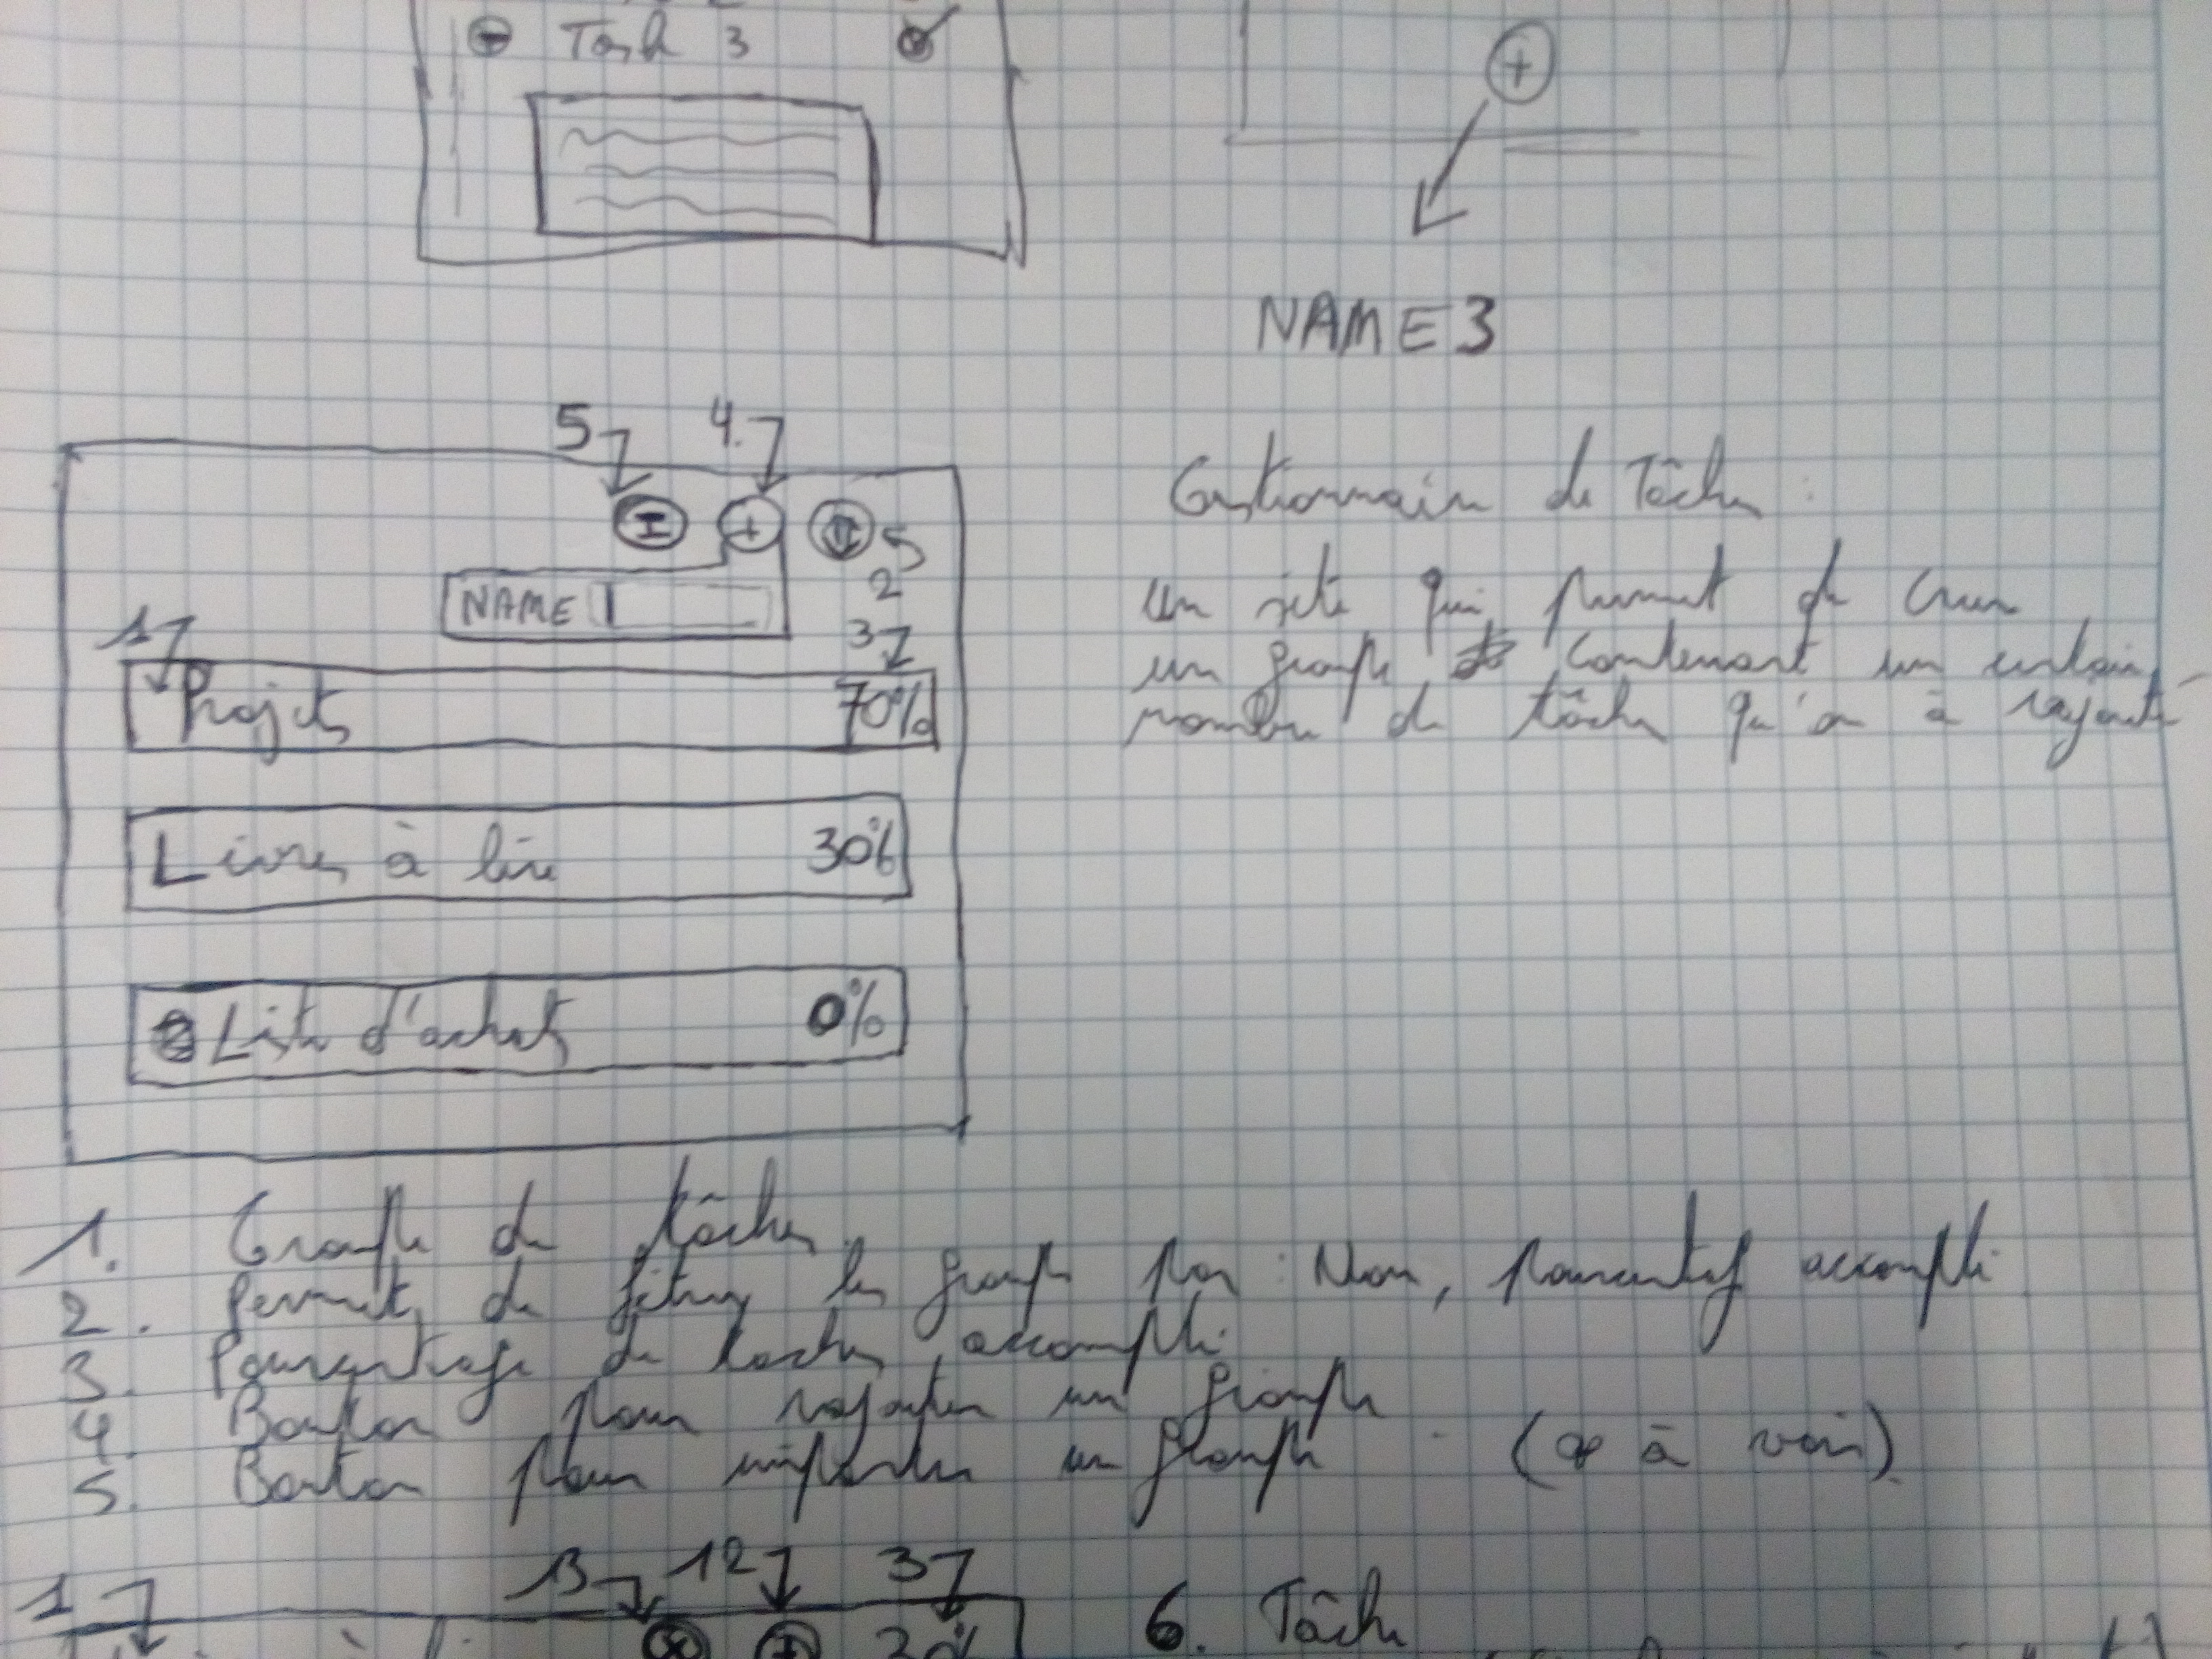 Task 3
+
NAME 3
5 4.
I +
NAME
2
1 3
Projets 70%
Livres à lire 30%
Liste d'achats 0%
Gestionnaire de Tâches :
un site qui permet de créer
un groupe contenant un certain
nombre de tâches qu'on à rajouté
1. Groupe de tâches
2. Permet de filtrer les groupes par : Nom, pourcentage accompli
3. Pourcentage de taches accompli
4. Bouton pour rajouter un groupe
5. Bouton pour importer un groupe (à voir)
1 13 12 3
30%
6. Tâche